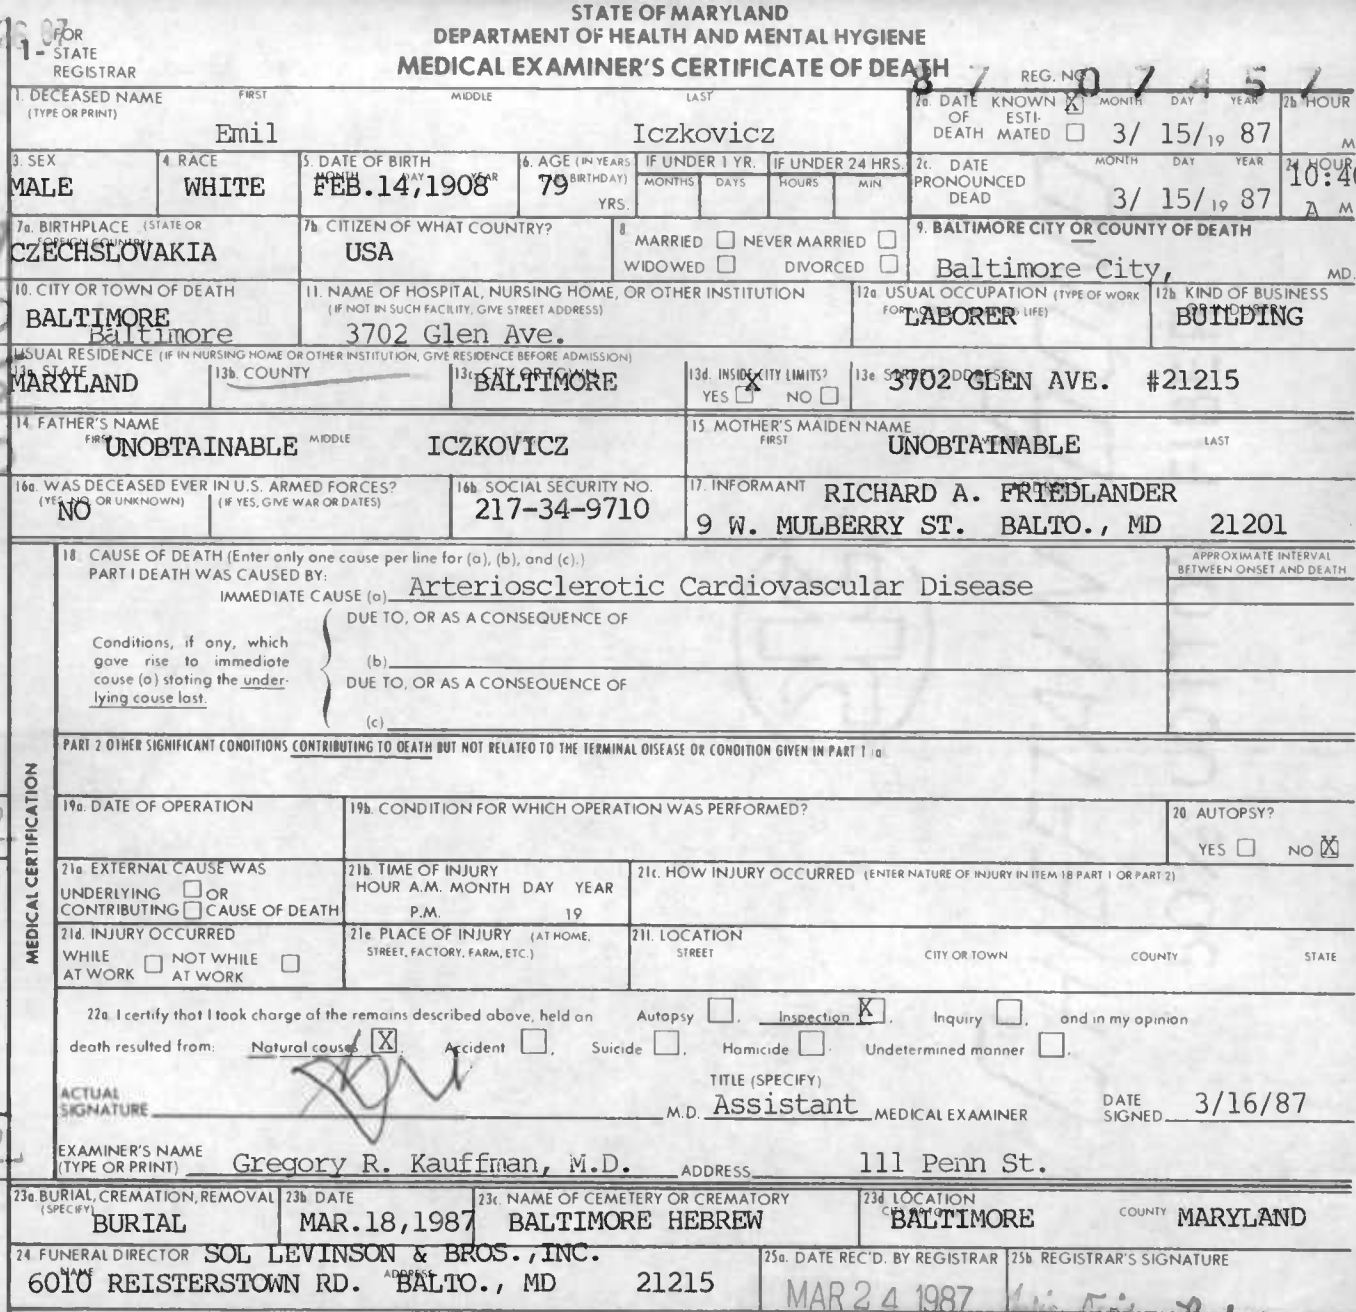 STATE OF MARYLAND
DEPARTMENT OF HEALTH AND MENTAL HYGIENE
MEDICAL EXAMINER'S CERTIFICATE OF DEATH
1- FOR STATE REGISTRAR
REG. NO. 87 07457
1. DECEASED NAME (TYPE OR PRINT) FIRST MIDDLE LAST
Emil Iczkovicz
2a. DATE OF DEATH KNOWN X ESTIMATED MONTH DAY YEAR 2b HOUR
3/ 15/19 87 M
3. SEX 4. RACE 5. DATE OF BIRTH MONTH DAY YEAR 6. AGE (IN YEARS BIRTHDAY) YRS. IF UNDER 1 YR. MONTHS DAYS IF UNDER 24 HRS. HOURS MIN
MALE WHITE FEB.14,1908 79
2c. DATE PRONOUNCED DEAD MONTH DAY YEAR HOUR
3/ 15/19 87 10:40 A M
7a. BIRTHPLACE (STATE OR FOREIGN COUNTRY) 7b. CITIZEN OF WHAT COUNTRY?
CZECHSLOVAKIA USA
8 MARRIED NEVER MARRIED
WIDOWED DIVORCED
9. BALTIMORE CITY OR COUNTY OF DEATH
Baltimore City, MD.
10. CITY OR TOWN OF DEATH
BALTIMORE
Baltimore
11. NAME OF HOSPITAL, NURSING HOME, OR OTHER INSTITUTION
(IF NOT IN SUCH FACILITY, GIVE STREET ADDRESS)
3702 Glen Ave.
12a USUAL OCCUPATION (TYPE OF WORK LIFE)
LABORER
12b KIND OF BUSINESS
BUILDING
USUAL RESIDENCE (IF IN NURSING HOME OR OTHER INSTITUTION, GIVE RESIDENCE BEFORE ADMISSION)
13a STATE 13b. COUNTY 13c CITY OR TOWN 13d. INSIDE CITY LIMITS? 13e STREET ADDRESS
MARYLAND BALTIMORE YES X NO 3702 GLEN AVE. #21215
14 FATHER'S NAME FIRST MIDDLE
UNOBTAINABLE ICZKOVICZ
15 MOTHER'S MAIDEN NAME FIRST LAST
UNOBTAINABLE
16a. WAS DECEASED EVER IN U.S. ARMED FORCES?
(YES, NO OR UNKNOWN) (IF YES, GIVE WAR OR DATES)
NO
16b. SOCIAL SECURITY NO.
217-34-9710
17. INFORMANT RICHARD A. FRIEDLANDER
9 W. MULBERRY ST. BALTO., MD 21201
18 CAUSE OF DEATH (Enter only one cause per line for (a), (b), and (c).)
PART I DEATH WAS CAUSED BY:
IMMEDIATE CAUSE (a) Arteriosclerotic Cardiovascular Disease
APPROXIMATE INTERVAL
BETWEEN ONSET AND DEATH
Conditions, if any, which
gave rise to immediate
cause (a) stating the under-
lying cause last.
DUE TO, OR AS A CONSEQUENCE OF
(b)
DUE TO, OR AS A CONSEQUENCE OF
(c)
PART 2 OTHER SIGNIFICANT CONDITIONS CONTRIBUTING TO DEATH BUT NOT RELATED TO THE TERMINAL DISEASE OR CONDITION GIVEN IN PART 1 a
MEDICAL CERTIFICATION
19a. DATE OF OPERATION
19b. CONDITION FOR WHICH OPERATION WAS PERFORMED?
20 AUTOPSY?
YES NO X
21a EXTERNAL CAUSE WAS
UNDERLYING OR
CONTRIBUTING CAUSE OF DEATH
21b. TIME OF INJURY
HOUR A.M. MONTH DAY YEAR
P.M. 19
21c. HOW INJURY OCCURRED (ENTER NATURE OF INJURY IN ITEM 18 PART 1 OR PART 2)
21d. INJURY OCCURRED
WHILE AT WORK NOT WHILE AT WORK
21e PLACE OF INJURY (AT HOME, STREET, FACTORY, FARM, ETC.)
21f. LOCATION
STREET CITY OR TOWN COUNTY STATE
22a I certify that I took charge of the remains described above, held an Autopsy, Inspection X, Inquiry, and in my opinion
death resulted from: Natural causes X, Accident, Suicide, Homicide, Undetermined manner.
ACTUAL SIGNATURE M.D. TITLE (SPECIFY) Assistant MEDICAL EXAMINER DATE SIGNED 3/16/87
EXAMINER'S NAME (TYPE OR PRINT) Gregory R. Kauffman, M.D. ADDRESS 111 Penn St.
23a. BURIAL, CREMATION, REMOVAL (SPECIFY) 23b DATE 23c. NAME OF CEMETERY OR CREMATORY 23d LOCATION COUNTY
BURIAL MAR.18,1987 BALTIMORE HEBREW BALTIMORE MARYLAND
24 FUNERAL DIRECTOR SOL LEVINSON & BROS.,INC.
NAME ADDRESS
6010 REISTERSTOWN RD. BALTO., MD 21215
25a. DATE REC'D. BY REGISTRAR 25b REGISTRAR'S SIGNATURE
MAR 24 1987